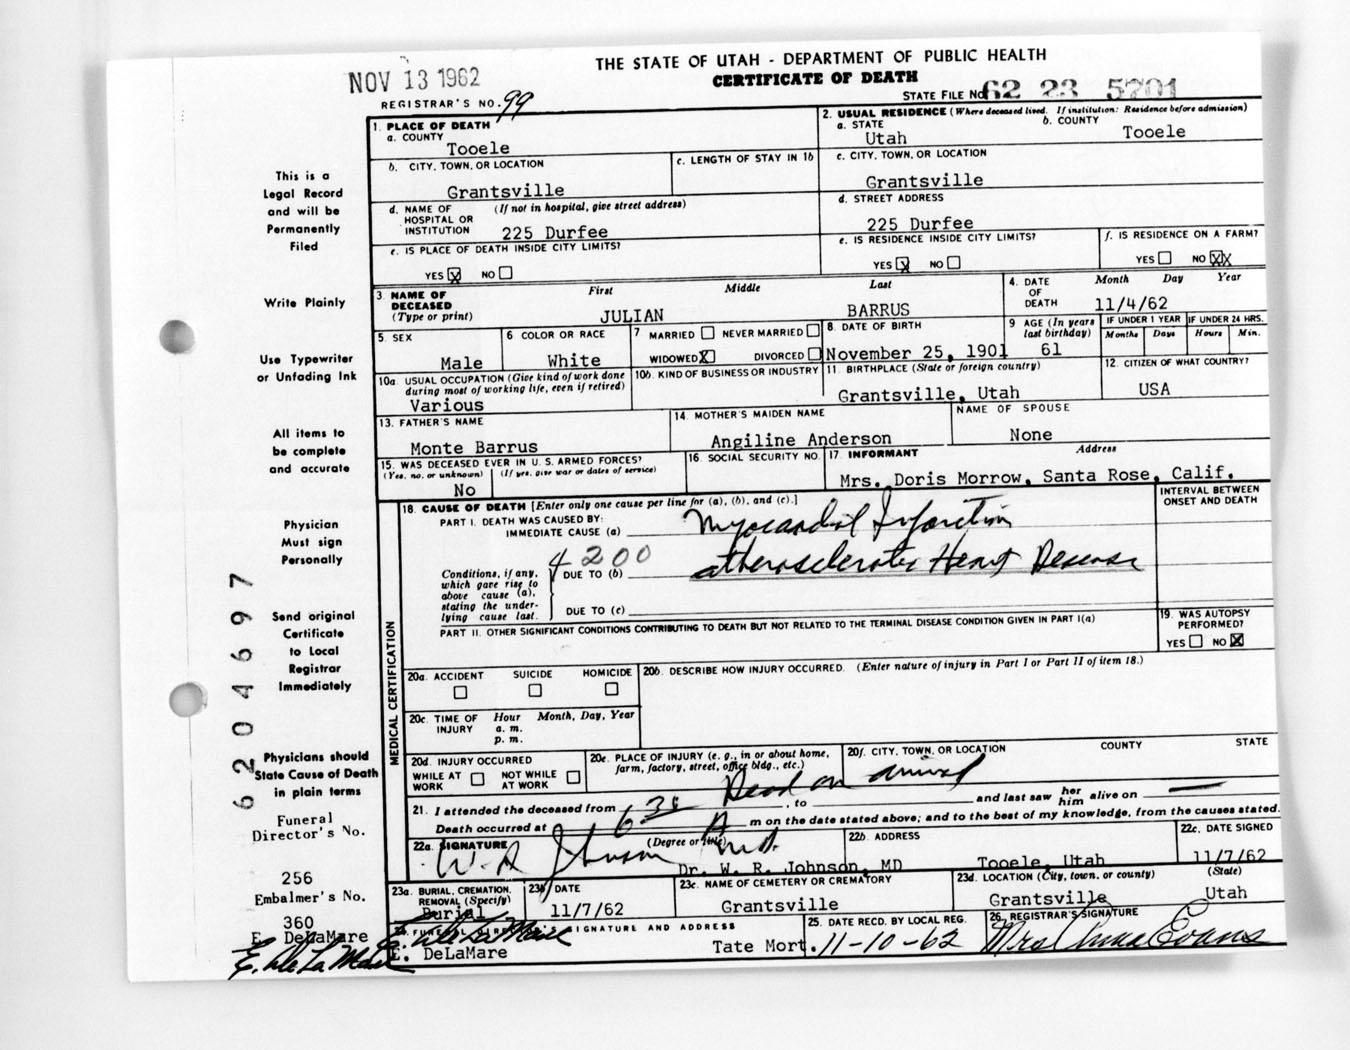 NOV 13 1962
THE STATE OF UTAH - DEPARTMENT OF PUBLIC HEALTH
CERTIFICATE OF DEATH
REGISTRAR'S NO. 99
STATE FILE NO. 62 23 5701
1. PLACE OF DEATH
a. COUNTY
Tooele
2. USUAL RESIDENCE (Where deceased lived. If institution: Residence before admission)
a. STATE b. COUNTY
Utah Tooele
b. CITY, TOWN, OR LOCATION
Grantsville
c. LENGTH OF STAY IN 1b
c. CITY, TOWN, OR LOCATION
Grantsville
d. NAME OF HOSPITAL OR INSTITUTION (If not in hospital, give street address)
225 Durfee
d. STREET ADDRESS
225 Durfee
e. IS PLACE OF DEATH INSIDE CITY LIMITS?
YES X NO
e. IS RESIDENCE INSIDE CITY LIMITS?
YES X NO
f. IS RESIDENCE ON A FARM?
YES NO XX
3. NAME OF DECEASED (Type or print)
First Middle Last
JULIAN BARRUS
4. DATE OF DEATH Month Day Year
11/4/62
5. SEX
Male
6 COLOR OR RACE
White
7 MARRIED NEVER MARRIED
WIDOWED X DIVORCED
8. DATE OF BIRTH
November 25, 1901
9 AGE (In years last birthday)
61
IF UNDER 1 YEAR
Months Days
IF UNDER 24 HRS.
Hours Min.
10a. USUAL OCCUPATION (Give kind of work done during most of working life, even if retired)
Various
10b. KIND OF BUSINESS OR INDUSTRY
11. BIRTHPLACE (State or foreign country)
Grantsville, Utah
12. CITIZEN OF WHAT COUNTRY?
USA
13. FATHER'S NAME
Monte Barrus
14. MOTHER'S MAIDEN NAME
Angiline Anderson
NAME OF SPOUSE
None
15. WAS DECEASED EVER IN U. S. ARMED FORCES?
(Yes, no, or unknown) (If yes, give war or dates of service)
No
16. SOCIAL SECURITY NO.
17. INFORMANT Address
Mrs. Doris Morrow, Santa Rose, Calif.
MEDICAL CERTIFICATION
18. CAUSE OF DEATH [Enter only one cause per line for (a), (b), and (c).]
INTERVAL BETWEEN ONSET AND DEATH
PART I. DEATH WAS CAUSED BY:
IMMEDIATE CAUSE (a) Myocardial Infarction
4200
Conditions, if any, which gave rise to above cause (a), stating the underlying cause last.
DUE TO (b) atherosclerotic Heart Disease
DUE TO (c)
PART II. OTHER SIGNIFICANT CONDITIONS CONTRIBUTING TO DEATH BUT NOT RELATED TO THE TERMINAL DISEASE CONDITION GIVEN IN PART I(a)
19. WAS AUTOPSY PERFORMED?
YES NO X
20a. ACCIDENT SUICIDE HOMICIDE
20b. DESCRIBE HOW INJURY OCCURRED. (Enter nature of injury in Part I or Part II of item 18.)
20c. TIME OF INJURY Hour Month, Day, Year
a. m.
p. m.
20d. INJURY OCCURRED
WHILE AT WORK NOT WHILE AT WORK
20e. PLACE OF INJURY (e. g., in or about home, farm, factory, street, office bldg., etc.)
20f. CITY, TOWN, OR LOCATION COUNTY STATE
Dead on arrival
21. I attended the deceased from , to and last saw her him alive on
Death occurred at 6 30 A m on the date stated above; and to the best of my knowledge, from the causes stated.
22a. SIGNATURE (Degree or title)
W. R Johnson M.D.
Dr. W. R. Johnson, MD
22b. ADDRESS
Tooele, Utah
22c. DATE SIGNED
11/7/62
23a. BURIAL, CREMATION, REMOVAL (Specify)
Burial
23b. DATE
11/7/62
23c. NAME OF CEMETERY OR CREMATORY
Grantsville
23d. LOCATION (City, town, or county) (State)
Grantsville Utah
24. FUNERAL DIRECTOR'S SIGNATURE AND ADDRESS
E. DeLaMare
E. DeLaMare Tate Mort.
25. DATE RECD. BY LOCAL REG.
11-10-62
26. REGISTRAR'S SIGNATURE
Mrs Anna Evans
This is a
Legal Record
and will be
Permanently
Filed
Write Plainly
Use Typewriter
or Unfading Ink
All items to
be complete
and accurate
Physician
Must sign
Personally
Send original
Certificate
to Local
Registrar
Immediately
Physicians should
State Cause of Death
in plain terms
Funeral
Director's No.
256
Embalmer's No.
360
E. DeLaMare
E. DeLaMare
6204697